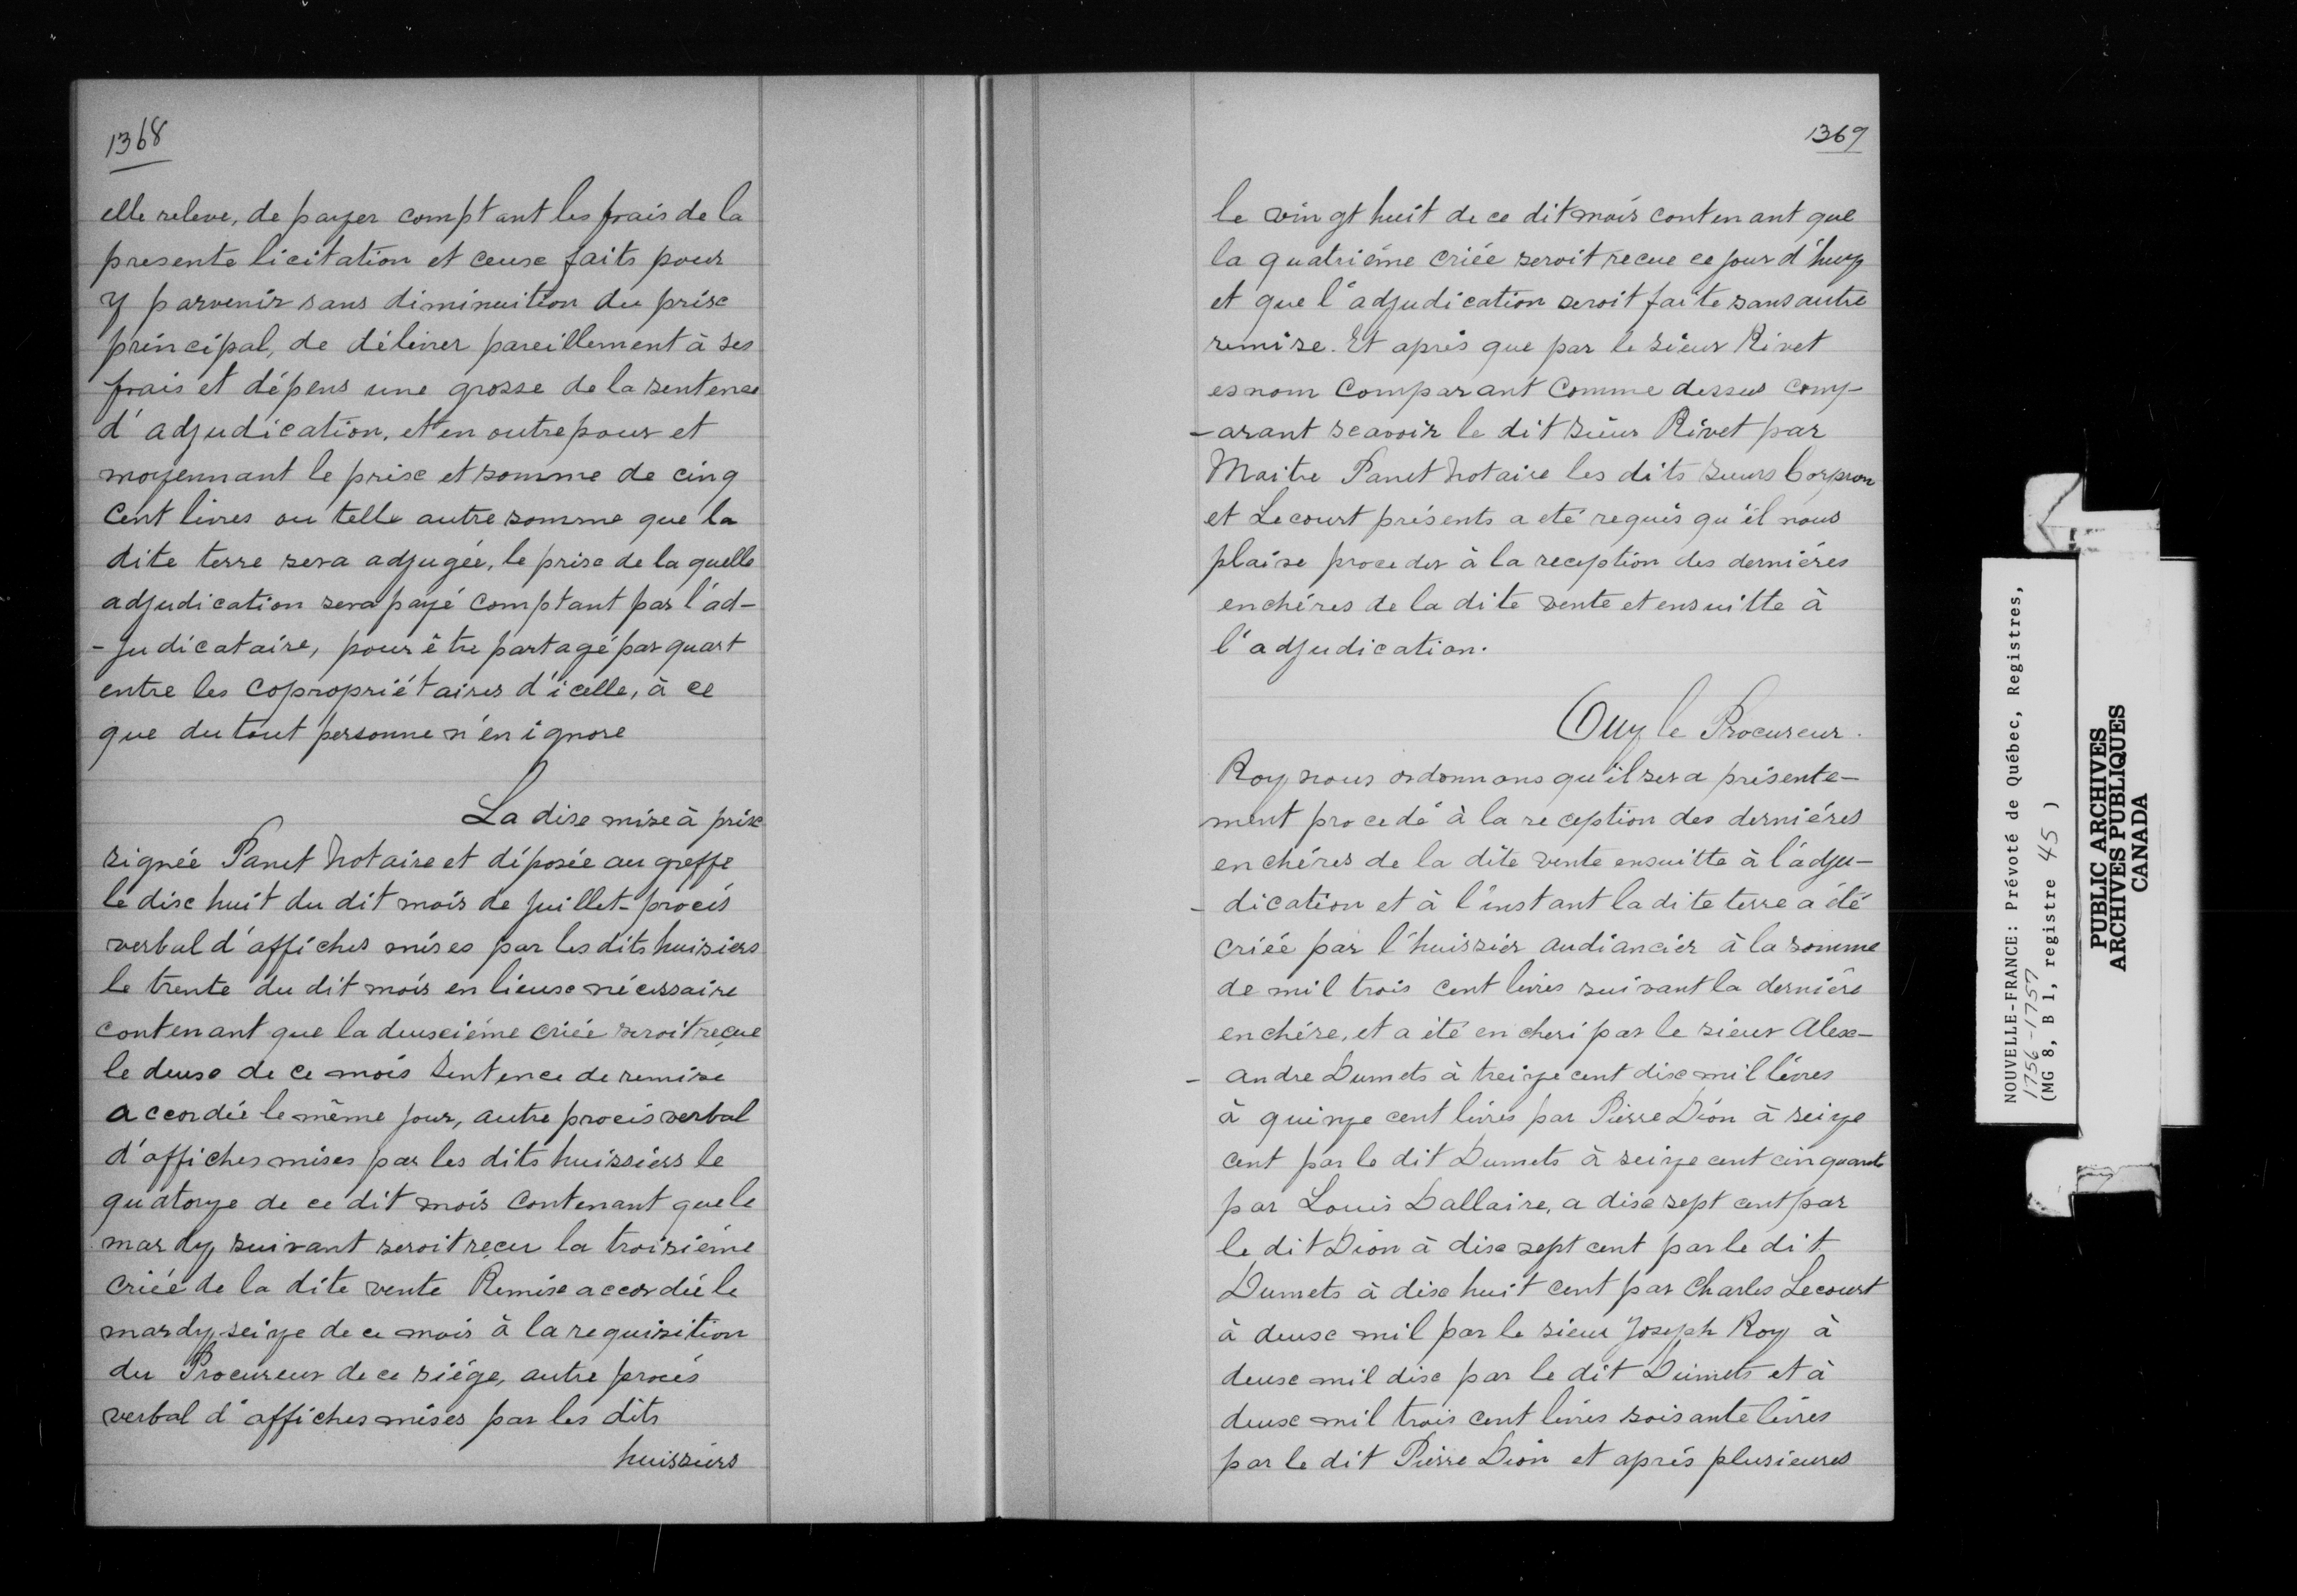 1368
elle releve, de payer comptant les frais de la
presente licitation et ceux faits pour
y parvenir sans diminuition du prix
principal, de délivrer pareillement à ses
frais et dépens une grosse de la sentence
d'adjudication, et en outre pour et
moyennant le prix et somme de cinq
Cent livres ou telle autre somme que la
dite terre sera adjugée, le prix de la quelle
adjudication sera payé comptant par l'ad-
-judicataire, pour être partagé par quart
entre les copropriétaires d'icelle, à ce
que du tout personne n'en ignore
La dise mise à prix
signée Panet Notaire et déposée au greffe
le dix huit du dit mois de juillet - procés
verbal d'affiches mises par les dits huisiers
le trente du dit mois en lieux nécessaire
contenant que la deuxiéme criée seroit reçue
le deux de ce mois Sentence de remise
accordée le même jour, autre procés verbal
d'affiches mises par les dits huissiers le
quatorze de ce dit mois contenant que le
mardy suivant seroit reçeu la troisiéme
criée de la dite vente Remise accordée le
mardy seize de ce mois à la requisition
du Procureur de ce siége, autre procés
verbal d'affiches mises par les dits
huissiers
1369
le vingt huit de ce dit mois contenant que
la quatriéme criée seroit recue ce jour d'huy
et que l'adjudication seroit faite sans autre
remise. Et aprés que par le sieur Rivet
es nom Comparant Comme dessus comp-
-arant scavoir le dit sieur Rivet par
Maitre Panet Notaire les dits sieurs Corpron
et Lecourt présents a eté requis qu'il nous
plaise proceder à la reception des derniéres
enchéres de la dite vente et ensuitte à
l'adjudication.
Ouy le Procureur.
Roy nous ordonnons qu'il sera présente-
ment procedé à la reception des derniéres
enchéres de la dite vente ensuitte à l'adju-
- dication et à l'instant la dite terre a été
criée par l'huissier audiancier à la somme
de mil trois cent livres suivant la derniére
enchére, et a été encheri par le sieur Alex-
- andre Dumets à treize cent dix mil livres
à quinze cent livres par Pierre Dion à seize
cent par le dit Dumets à seize cent cinquante
par Louis Dallaire, a dix sept cent par
le dit Dion à dix sept cent par le dit
Dumets à dix huit cent par Charles Lecourt
à deux mil par le sieur Joseph Roy à
deux mil dix par le dit Dumets et à
deux mil trois cent livres soisante livres
par le dit Pierre Dion et aprés plusieures
NOUVELLE-FRANCE: Prévoté de Québec, Registres,
1756-1757
(MG 8, B 1, registre 45 )
PUBLIC ARCHIVES
ARCHIVES PUBLIQUES
CANADA